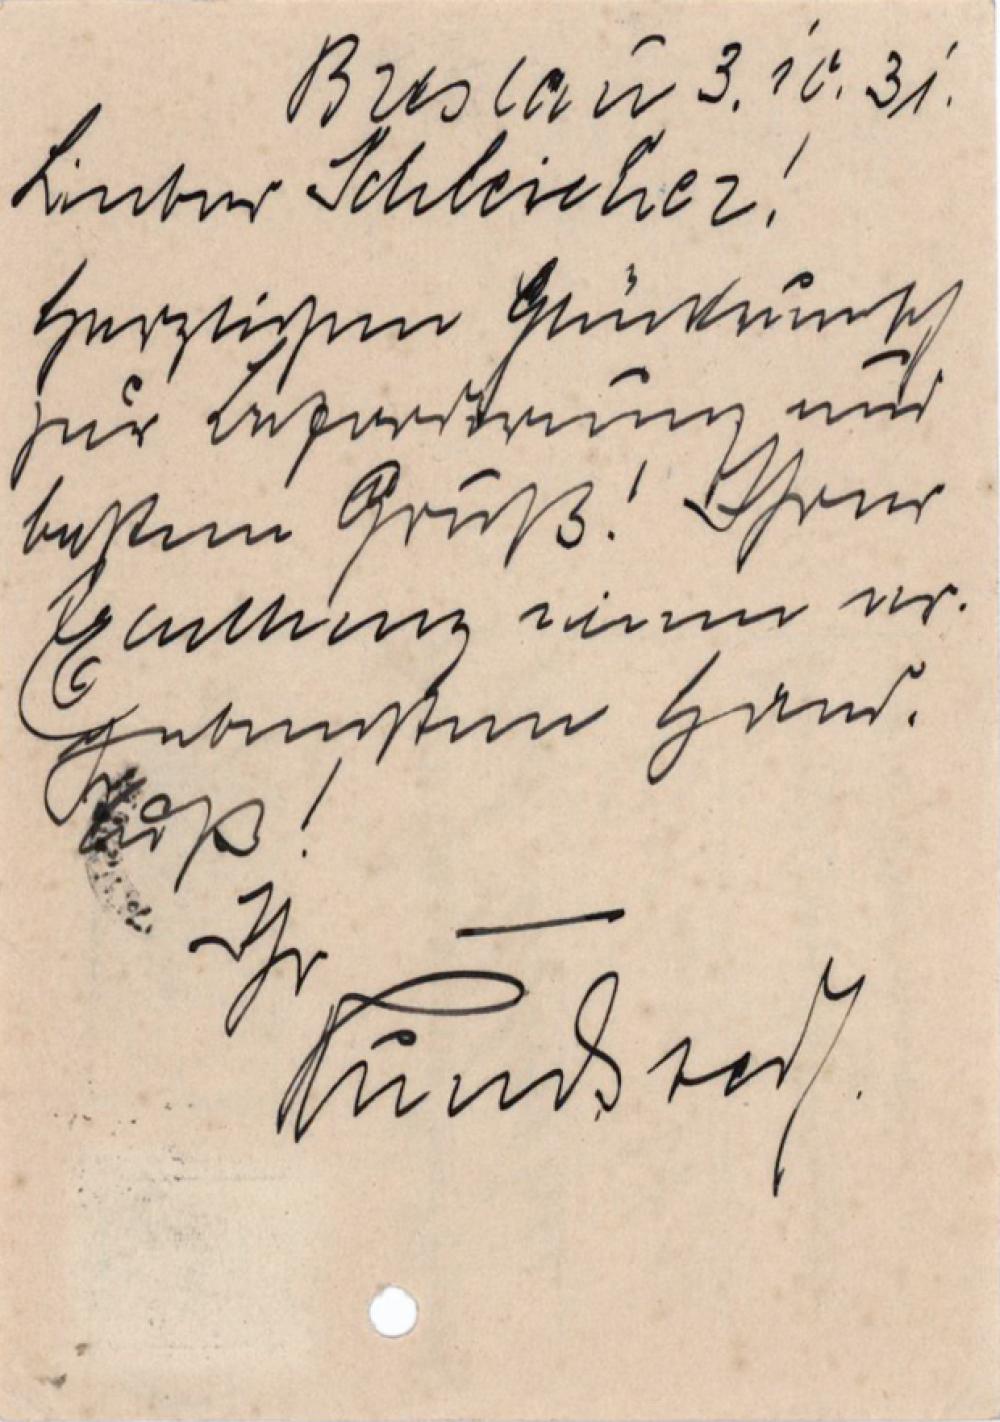 Breslau 3.10.31.
Lieber Schleicher!
Herzlichen Glückwunsch
zur Beförderung und
besten Gruß! Ihrer
Exzellenz einen er-
gebensten Hand-
kuß!
Ihr
Rundstedt.